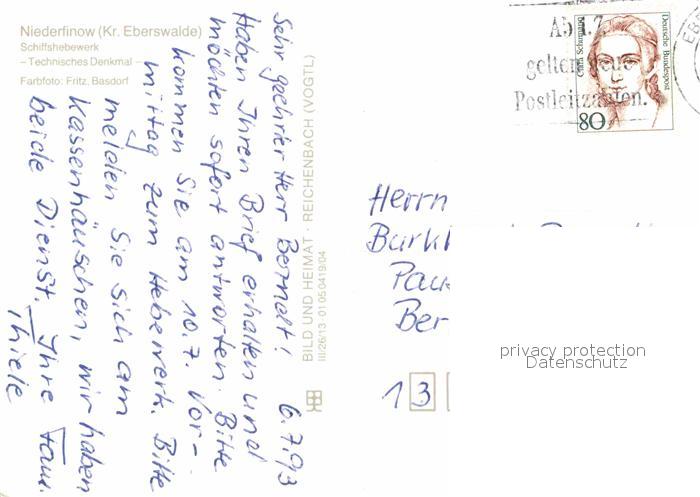 Niederfinow (Kr. Eberswalde)
Schiffshebewerk
– Technisches Denkmal –
Farbfoto: Fritz, Basdorf
6.7.93
Sehr geehrter Herr
Haben Ihren Brief erhalten und
möchten sofort antworten. Bitte
kommen Sie am 10.7. Vor-
mittag zum Hebewerk. Bitte
melden Sie sich am
Kassenhäuschen, wir haben
beide Dienst. Ihre Fam.
Thiele
BILD UND HEIMAT · REICHENBACH (VOGTL)
III/26/13 · 01 05 0419/04
Ab 1.7.
gelten neue
Postleitzahlen.
Clara Schumann
Deutsche Bundespost
80
Herrn
13
privacy protection
Datenschutz